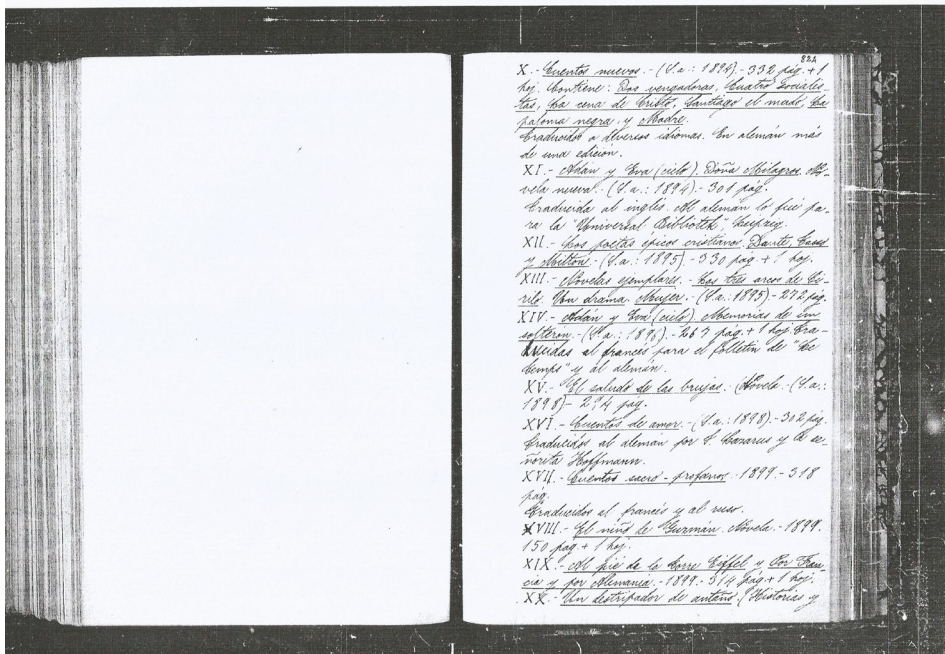 824
X.- Cuentos nuevos.- (S.a.: 1894).- 332 pág. + 1
hoj. Contiene: Dos vengadoras, Cuatro socialis-
tas, La cena de Cristo, Santiago el mudo, La
paloma negra, y Madre.
Traducidos a diversos idiomas. En alemán más
de una edición.
XI.- Adán y Eva (ciclo). Doña Milagros. No-
vela nueva.- (S.a.: 1894)- 301 pág.
Traducida al inglés. Al alemán lo fué pa-
ra la "Universal Bibliotek", Leipzig.
XII.- Los poetas épicos cristianos. Dante, Tasso
y Milton.- (S.a.: 1895).- 330 pág. + 1 hoj.
XIII.- Novelas ejemplares.- Los tres arcos de Ci-
rilo. Un drama. Mujer.- (S.a.: 1895)- 272 pág.
XIV.- Adán y Eva (ciclo). Memorias de un
solterón.- (S.a.: 1896).- 267 pág. + 1 hoj. Tra-
ducidas al francés para el folletín de "Le
Temps" y al alemán.
XV.- El saludo de las brujas.- Novela.- (S.a.:
1898)- 294 pág.
XVI.- Cuentos de amor.- (S.a.: 1898).- 302 pág.
Traducidos al alemán por S. Lazarus y la se-
ñorita Hoffmann.
XVII.- Cuentos sacro-profanos.- 1899.- 318
pág.
Traducidos al francés y al ruso.
XVIII.- El niño de Guzmán. Novela.- 1899.
150 pág. + 1 hoj.
XIX.- Al pie de la torre Eiffel y Por Fran-
cia y por Alemania.- 1899.- 514 pág. + 1 hoj.
XX.- Un destripador de antaño. (Historias y